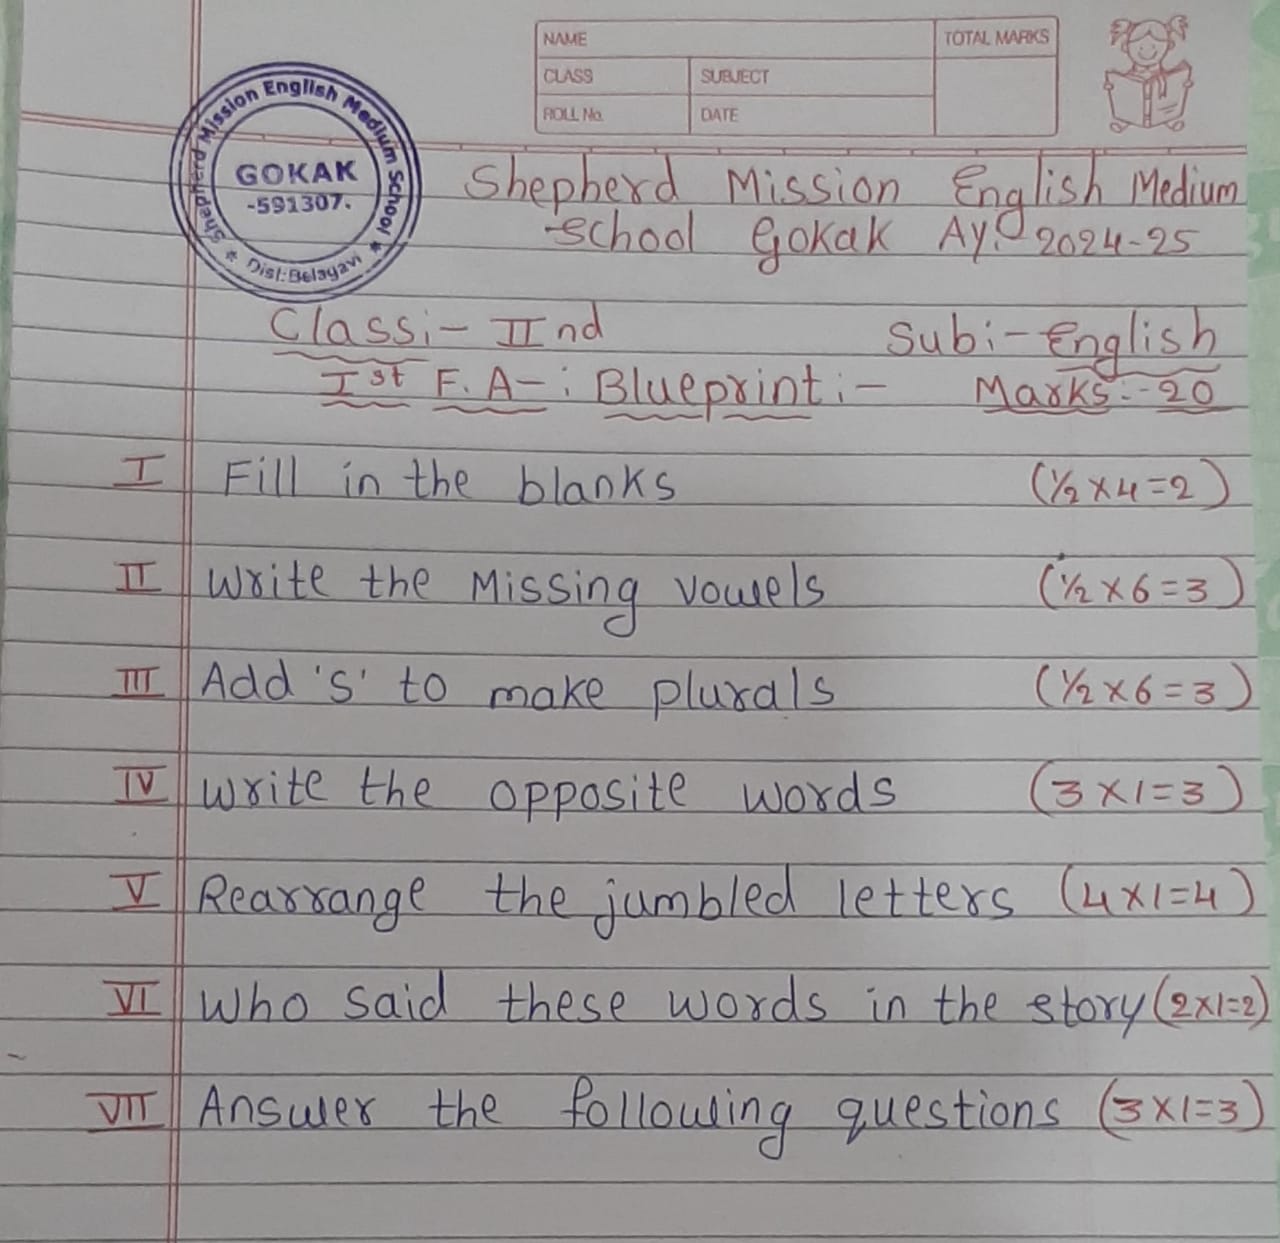 NAME
TOTAL MARKS
CLASS
SUBJECT
ROLL No.
DATE
Shepherd Mission English Medium School
GOKAK
-591307.
* Dist:Belagavi *
Shepherd Mission English Medium
School Gokak AY:- 2024-25
Class:- IInd Sub:- English
Ist F.A-: Blueprint:- Marks:-20
I Fill in the blanks (½x4=2)
II Write the Missing vowels (½x6=3)
III Add 's' to make plurals (½x6=3)
IV Write the opposite words (3x1=3)
V Rearrange the jumbled letters (4x1=4)
VI Who said these words in the story (2x1=2)
VII Answer the following questions (3x1=3)